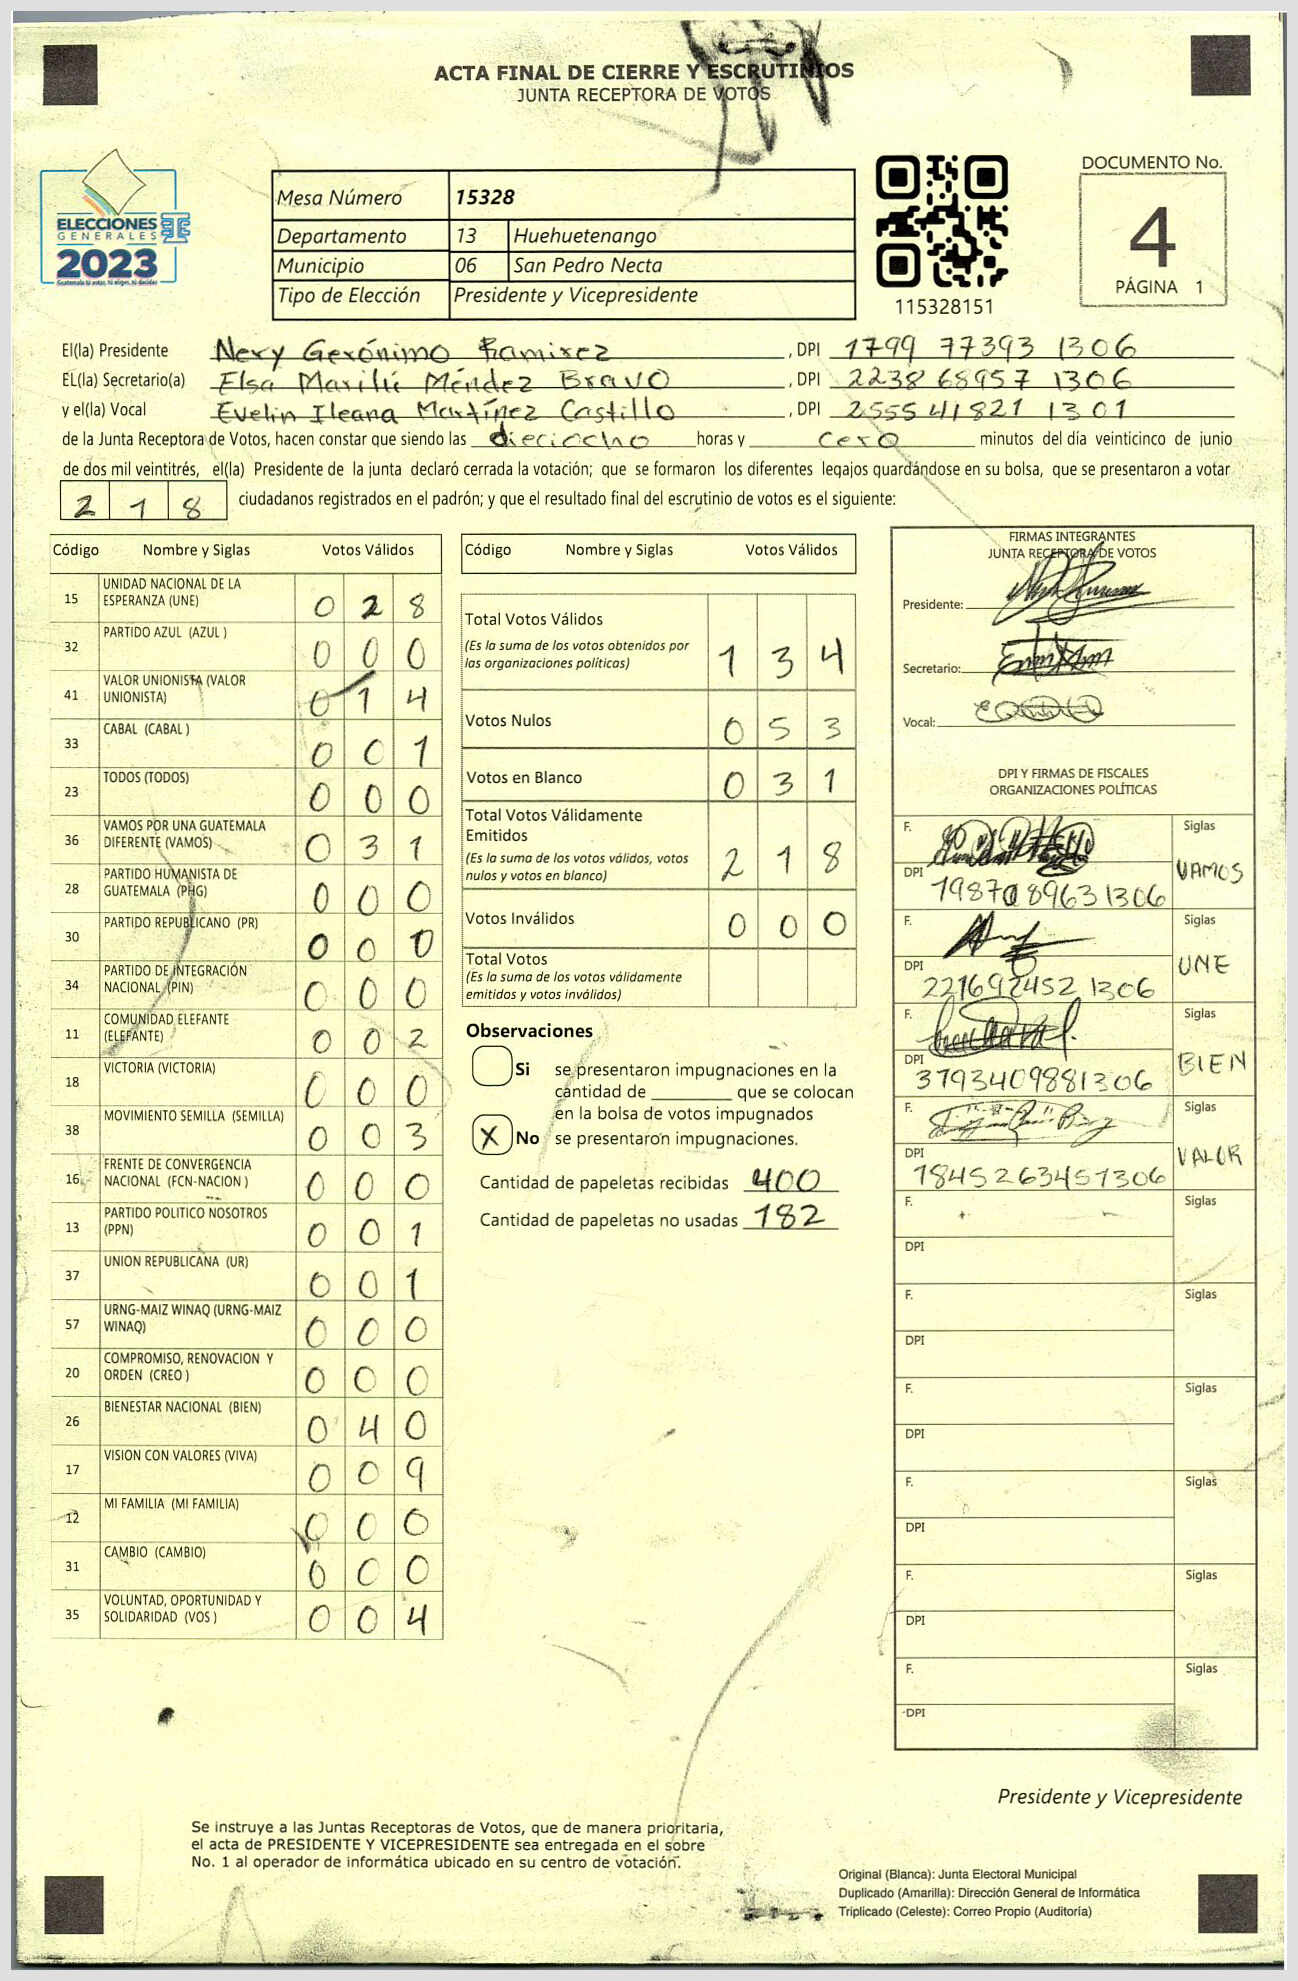 ACTA FINAL DE CIERRE Y ESCRUTINIOS
JUNTA RECEPTORA DE VOTOS
ELECCIONES
GENERALES
2023
Guatemala tú votas, tú eliges, tú decides
TSE
Mesa Número 15328
Departamento 13 Huehuetenango
Municipio 06 San Pedro Necta
Tipo de Elección Presidente y Vicepresidente
115328151
DOCUMENTO No.
4
PÁGINA 1
El(la) Presidente Nery Gerónimo Ramirez , DPI 1799 77393 1306
EL(la) Secretario(a) Elsa Marilú Méndez Bravo , DPI 2238 68957 1306
y el(la) Vocal Evelin Ileana Martínez Castillo , DPI 2555 41821 1301
de la Junta Receptora de Votos, hacen constar que siendo las dieciocho horas y cero minutos del día veinticinco de junio
de dos mil veintitrés, el(la) Presidente de la junta declaró cerrada la votación; que se formaron los diferentes legajos guardándose en su bolsa, que se presentaron a votar
2 1 8 ciudadanos registrados en el padrón; y que el resultado final del escrutinio de votos es el siguiente:
Código Nombre y Siglas Votos Válidos
15 UNIDAD NACIONAL DE LA
ESPERANZA (UNE) 0 2 8
32 PARTIDO AZUL (AZUL ) 0 0 0
41 VALOR UNIONISTA (VALOR
UNIONISTA) 0 1 4
33 CABAL (CABAL ) 0 0 1
23 TODOS (TODOS) 0 0 0
36 VAMOS POR UNA GUATEMALA
DIFERENTE (VAMOS) 0 3 1
28 PARTIDO HUMANISTA DE
GUATEMALA (PHG) 0 0 0
30 PARTIDO REPUBLICANO (PR) 0 0 0
34 PARTIDO DE INTEGRACIÓN
NACIONAL (PIN) 0 0 0
11 COMUNIDAD ELEFANTE
(ELEFANTE) 0 0 2
18 VICTORIA (VICTORIA) 0 0 0
38 MOVIMIENTO SEMILLA (SEMILLA) 0 0 3
16 FRENTE DE CONVERGENCIA
NACIONAL (FCN-NACION ) 0 0 0
13 PARTIDO POLITICO NOSOTROS
(PPN) 0 0 1
37 UNION REPUBLICANA (UR) 0 0 1
57 URNG-MAIZ WINAQ (URNG-MAIZ
WINAQ) 0 0 0
20 COMPROMISO, RENOVACION Y
ORDEN (CREO ) 0 0 0
26 BIENESTAR NACIONAL (BIEN) 0 4 0
17 VISION CON VALORES (VIVA) 0 0 9
12 MI FAMILIA (MI FAMILIA) 0 0 0
31 CAMBIO (CAMBIO) 0 0 0
35 VOLUNTAD, OPORTUNIDAD Y
SOLIDARIDAD (VOS ) 0 0 4
Código Nombre y Siglas Votos Válidos
Total Votos Válidos
(Es la suma de los votos obtenidos por
las organizaciones políticas) 1 3 4
Votos Nulos 0 5 3
Votos en Blanco 0 3 1
Total Votos Válidamente
Emitidos
(Es la suma de los votos válidos, votos
nulos y votos en blanco) 2 1 8
Votos Inválidos 0 0 0
Total Votos
(Es la suma de los votos válidamente
emitidos y votos inválidos)
Observaciones
Si se presentaron impugnaciones en la
cantidad de ________ que se colocan
en la bolsa de votos impugnados
X No se presentaron impugnaciones.
Cantidad de papeletas recibidas 400
Cantidad de papeletas no usadas 182
FIRMAS INTEGRANTES
JUNTA RECEPTORA DE VOTOS
Presidente:
Secretario:
Vocal:
DPI Y FIRMAS DE FISCALES
ORGANIZACIONES POLÍTICAS
F. Siglas
VAMOS
DPI
F. Siglas
UNE
DPI 221692452 1306
F. Siglas
BIEN
DPI 3793409881306
F. Siglas
VALOR
DPI 1845263451306
F. Siglas
DPI
F. Siglas
DPI
F. Siglas
DPI
F. Siglas
DPI
F. Siglas
DPI
F. Siglas
DPI
Presidente y Vicepresidente
Se instruye a las Juntas Receptoras de Votos, que de manera prioritaria,
el acta de PRESIDENTE Y VICEPRESIDENTE sea entregada en el sobre
No. 1 al operador de informática ubicado en su centro de votación.
Original (Blanca): Junta Electoral Municipal
Duplicado (Amarilla): Dirección General de Informática
Triplicado (Celeste): Correo Propio (Auditoría)